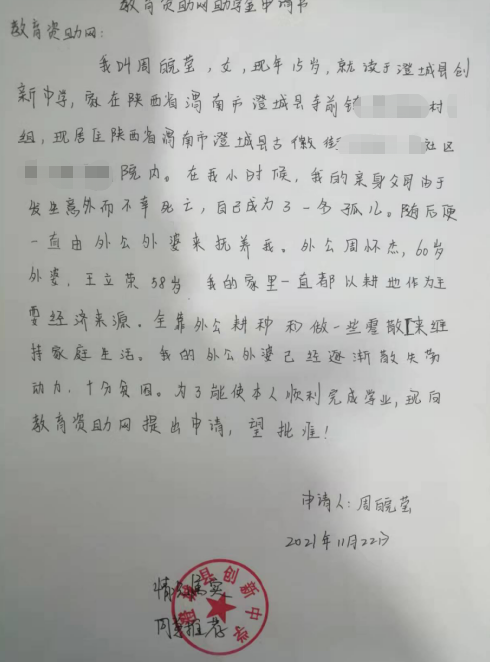 教育资助网助学金申请书
教育资助网：
我叫周皖莹，女，现年15岁，就读于澄城县创
新中学，家在陕西省渭南市澄城县寺前镇村
组，现居住陕西省渭南市澄城县古徵街社区
院内。在我小时候，我的亲身父母由于
发生意外而不幸死亡，自己成为了一名孤儿。随后便
一直由外公外婆来抚养我。外公周怀杰，60岁
外婆，王立荣58岁 我的家里一直都以耕地作为主
要经济来源。全靠外公耕种和做一些零散工来维
持家庭生活。我的外公外婆已经逐渐散失劳
动力，十分贫困。为了能使本人顺利完成学业，现向
教育资助网提出申请，望批准！
申请人：周皖莹
2021年11月22日
情况属实
同意推荐
澄城县创新中学